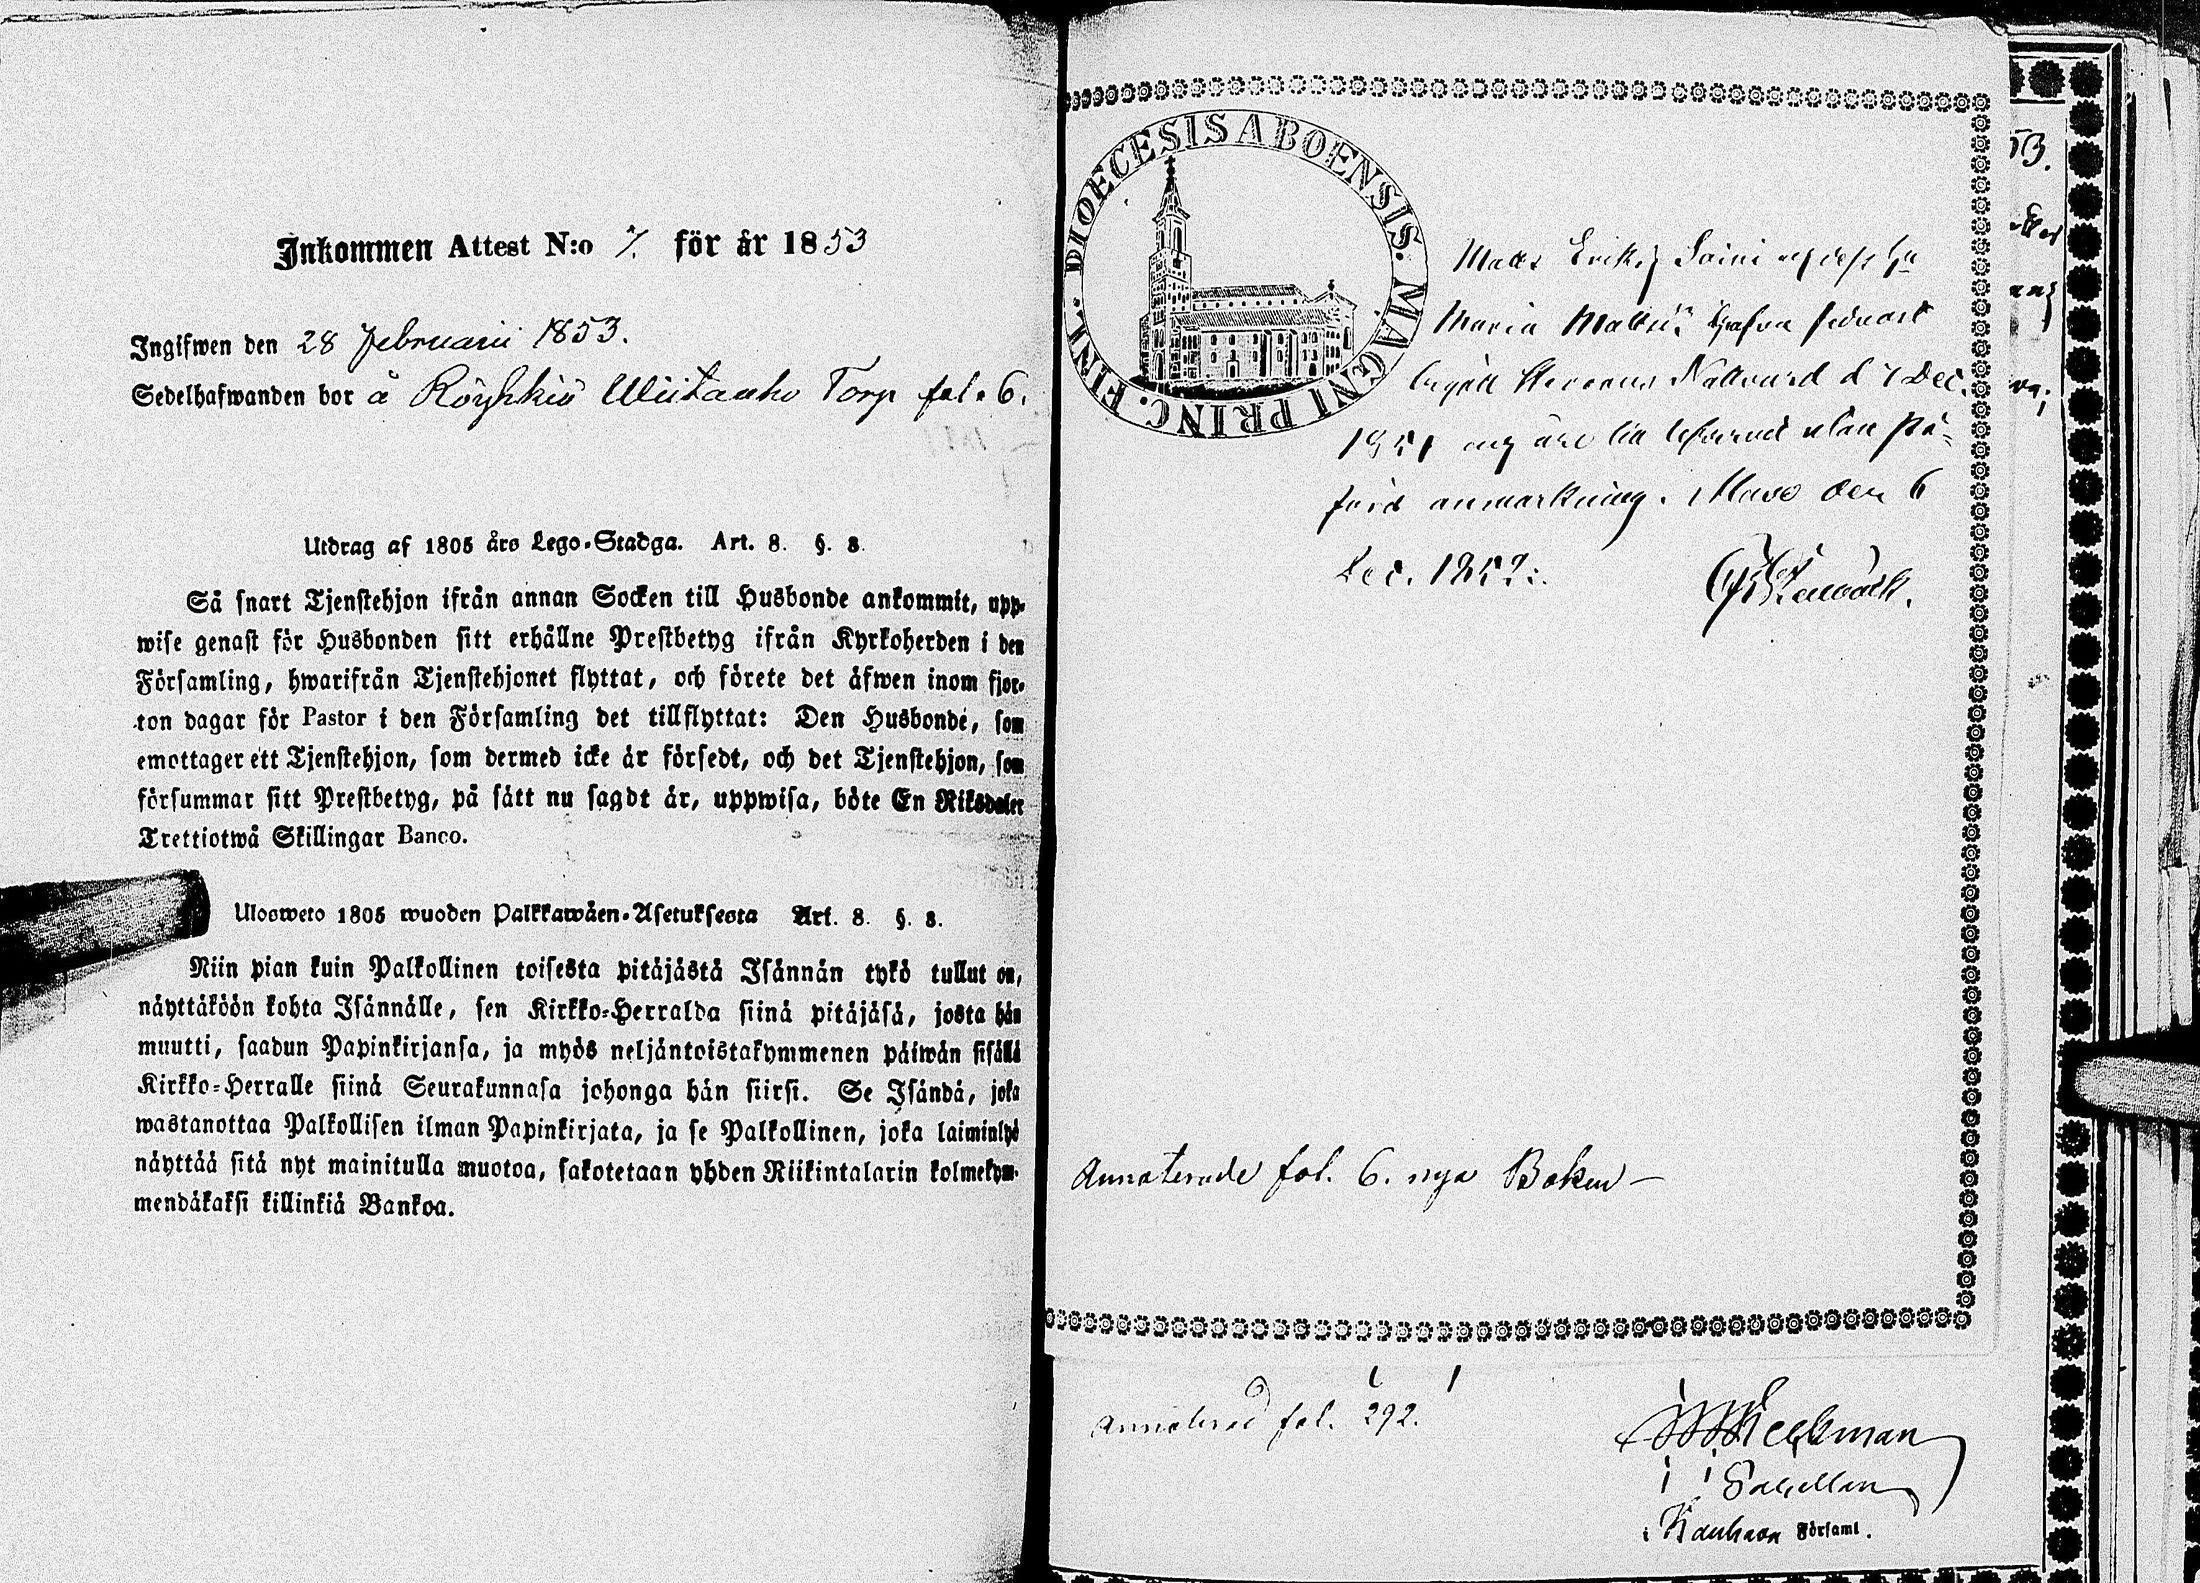 Inkommen Attest N:o 7. för år 1853
Ingifwen den 28 Februarii 1853.
Sedelhafwanden bor å Röyhkiö Wiitanko Torp fol. 6.
Utdrag af 1805 års Lego-Stadga. Art. 8. §. 8.
Så snart Tjenstehjon ifrån annan Socken till Husbonde ankommit, upp-
wise genast för Husbonden sitt erhållne Prestbetyg ifrån Kyrkoherden i den
Församling, hwarifrån Tjenstehjonet flyttat, och förete det äfwen inom fjor-
ton dagar för Pastor i den Församling det tillflyttat: Den Husbonde, som
emottager ett Tjenstehjon, som dermed icke är försedt, och det Tjenstehjon, som
försummar sitt Prestbetyg, på sätt nu sagdt är, uppwisa, böte En Riksdaler
Trettiotwå Skillingar Banco.
Ulosweto 1805 wuoden Palkkawäen-Asetuksesta Art. 8. §. 8.
Niin pian kuin Palkollinen toisesta pitäjästä Isännän tykö tullut on,
näyttäköön kohta Isännälle, sen Kirkko-Herralda siinä pitäjäsä, josta hän
muutti, saadun Papinkirjansa, ja myös neljäntoistakymmenen päiwän sisällä
Kirkko-Herralle siinä Seurakunnasa johonga hän siirsi. Se Isändä, joka
wastanottaa Palkollisen ilman Papinkirjata, ja se Palkollinen, joka laiminlyö
näyttää sitä nyt mainitulla muotoa, sakotetaan yhden Riikintalarin kolmekym-
mendäkaksi killinkiä Bankoa.
DIOECESIS ABOENSIS. MAGNI PRINC. FINL.
Matts Eriks Soini
Maria Matts hafva sednast
begått Herrans Nattvard d 7 Dec.
1851 utan på-
förd anmärkning. Alavo den 6
Dec. 1852.
Annoterade fol. 6. nya Boken —
Annoterad fol. 292.
Heckman
Sacellan
i Kauhava Församl.